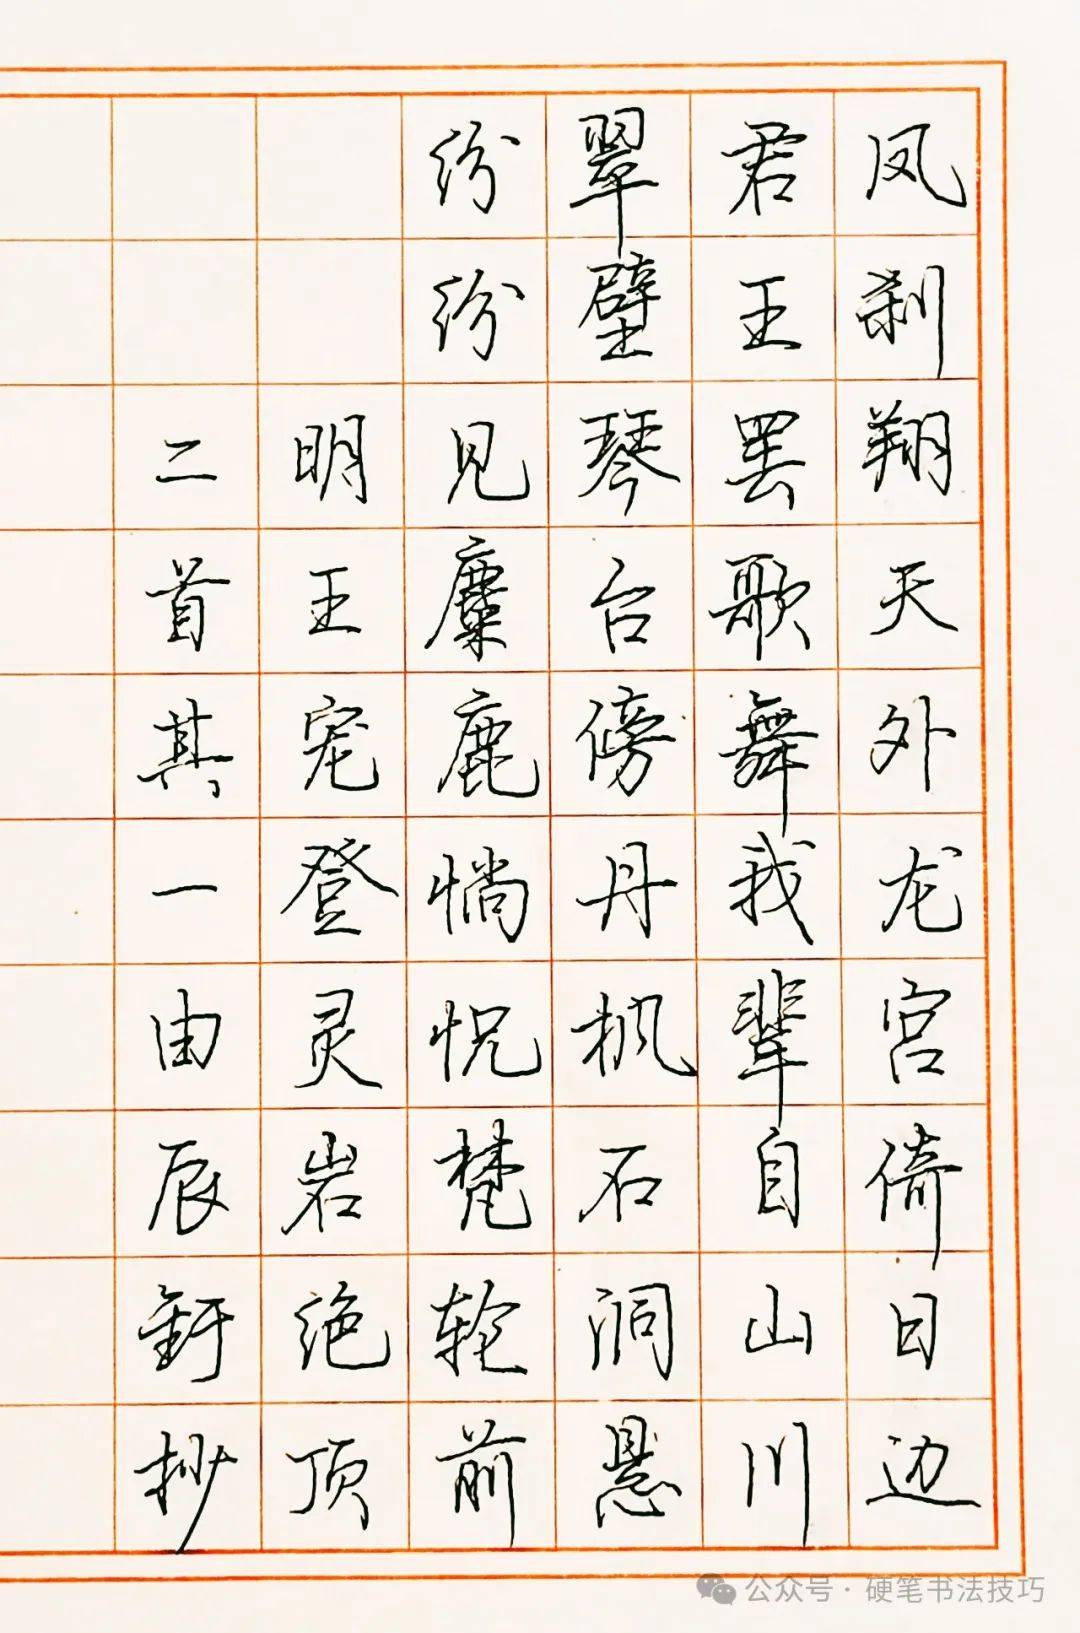 凤刹翔天外龙宫倚日边
君王罢歌舞我辈自山川
翠壁琴台傍丹枫石洞悬
纷纷见麋鹿惝怳梵轮前
明王宠登灵岩绝顶
二首其一由辰釪抄
公众号·硬笔书法技巧